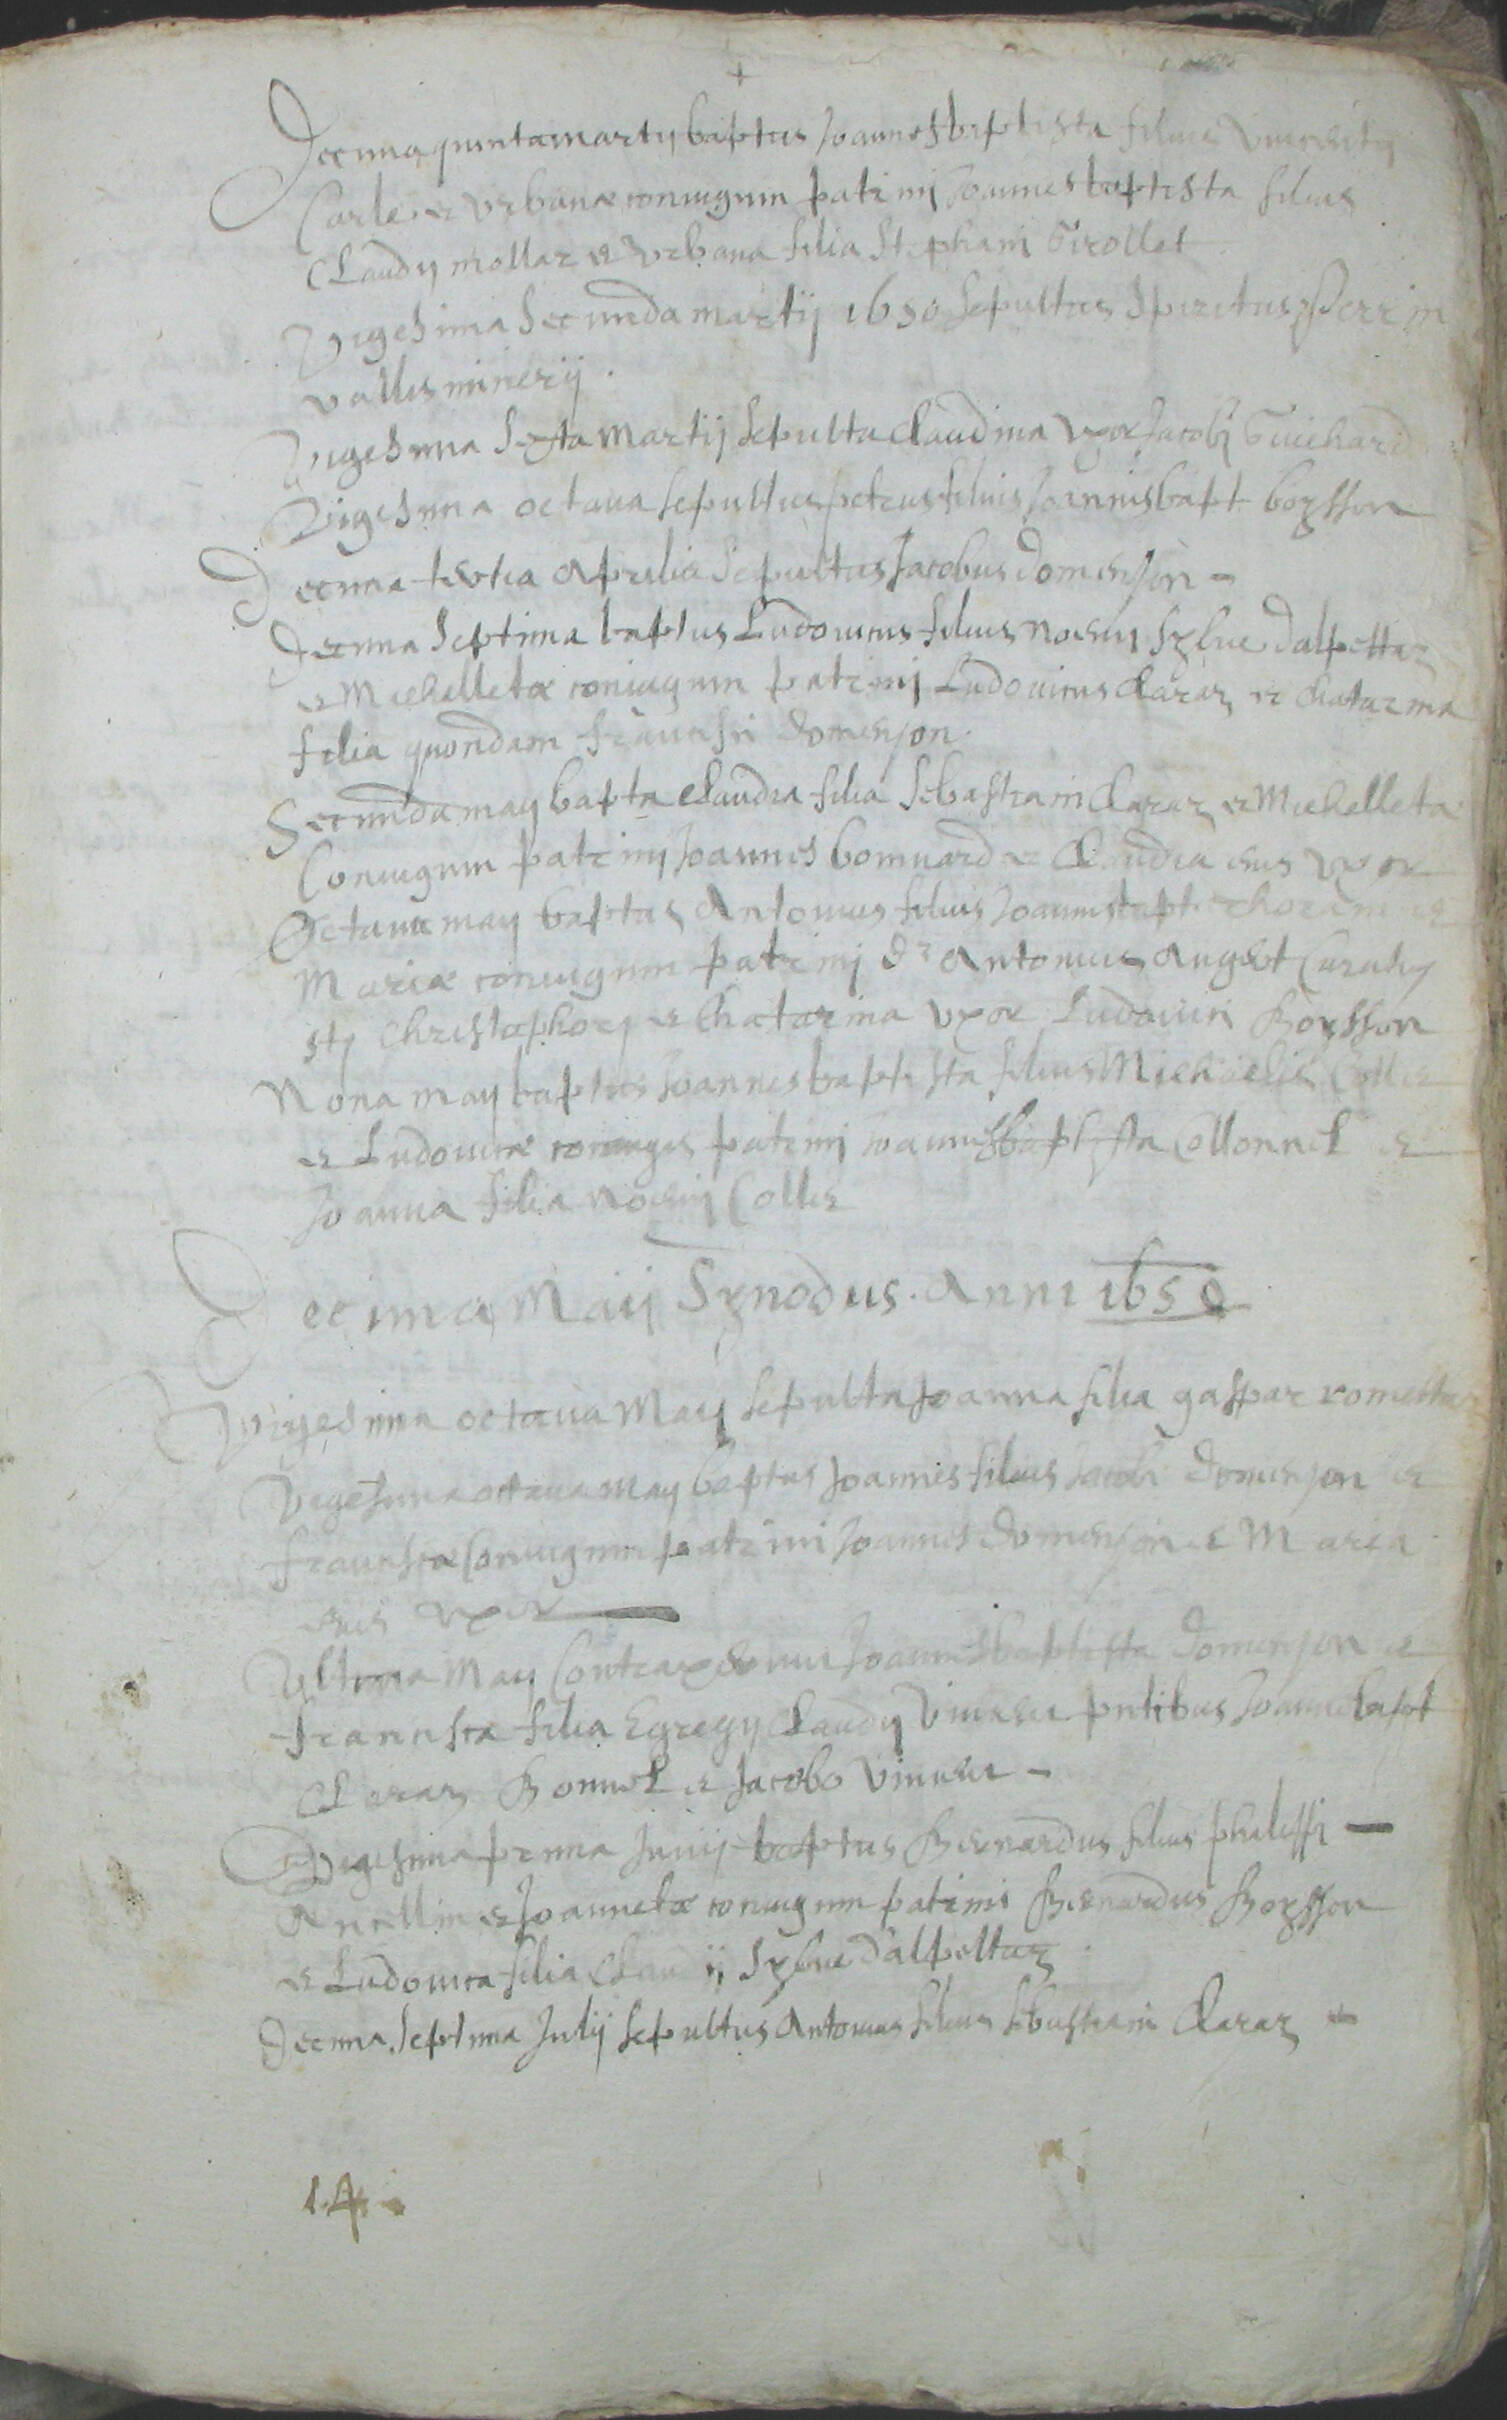 +
Decima quinta martij baptus Joannesbaptista filius
Carle et Urbanæ coniugum patrinj Joannes baptista filius
Claudij mollar et Urbana filia Stephani Girollet
Vigesima Secunda martij 1650 sepultus Spiritus Perrin
vallisminerij.
Vigesima Sexta Martij sepulta Claudina Uxor Jacobj Guichard
Vigesima octava sepultus petrus filius Joannisbapt boysson
Decima tertia Aprilis Sepultus Jacobus domenjon -
decima Septima baptus Ludovicus filius noelij Sylve dalpettaz
et Michelletæ coniugum patrinj Ludovicus Claraz et Chatarina
filia quondam francisci domenjon.
Secunda maij bapta Claudia filia Sebastiani Claraz et Michelleta
Coniugum patrinj Joannes bonnard et Claudia eius uxor
Octava maij baptus Antonius filius Joannisbapt et
Mariæ coniugum patrinj Dr Antonius Augert Curatus
sti Christophorj et Chatarina uxor Ludovici Boysson
Nona maij baptus Joannesbaptista filius Michaelis Collet
et Ludovicæ coniuges patrini Joannesbaptista Collonnel et
Joanna filia Noelij Collet
Decima Maij Synodus. Anni 1650
Vigesima octava Maij sepulta Joanna filia gaspar romettaz
Vigesima octava maij baptus Joannes filius Jacobi domenjon et
franciscæ Coniugum patrini Joannes domenjon et Maria
eius uxor
Ultima Maij Contraxerunt Joannesbaptista domenjon et
francisca filia Egregij Claudij Vincent pntibus Joannebapt
Claraz Bonnel et Jacobo Vincent -
Vigesima prima Junij baptus Bernardus filius philippi -
Ancellin et Joannetæ coniugum patrini Bernardus Boysson
et Ludovica filia Claudij Sylve dalpettaz.
decima Septima Julij sepultus Antonius filius sebastiani Claraz -
14.